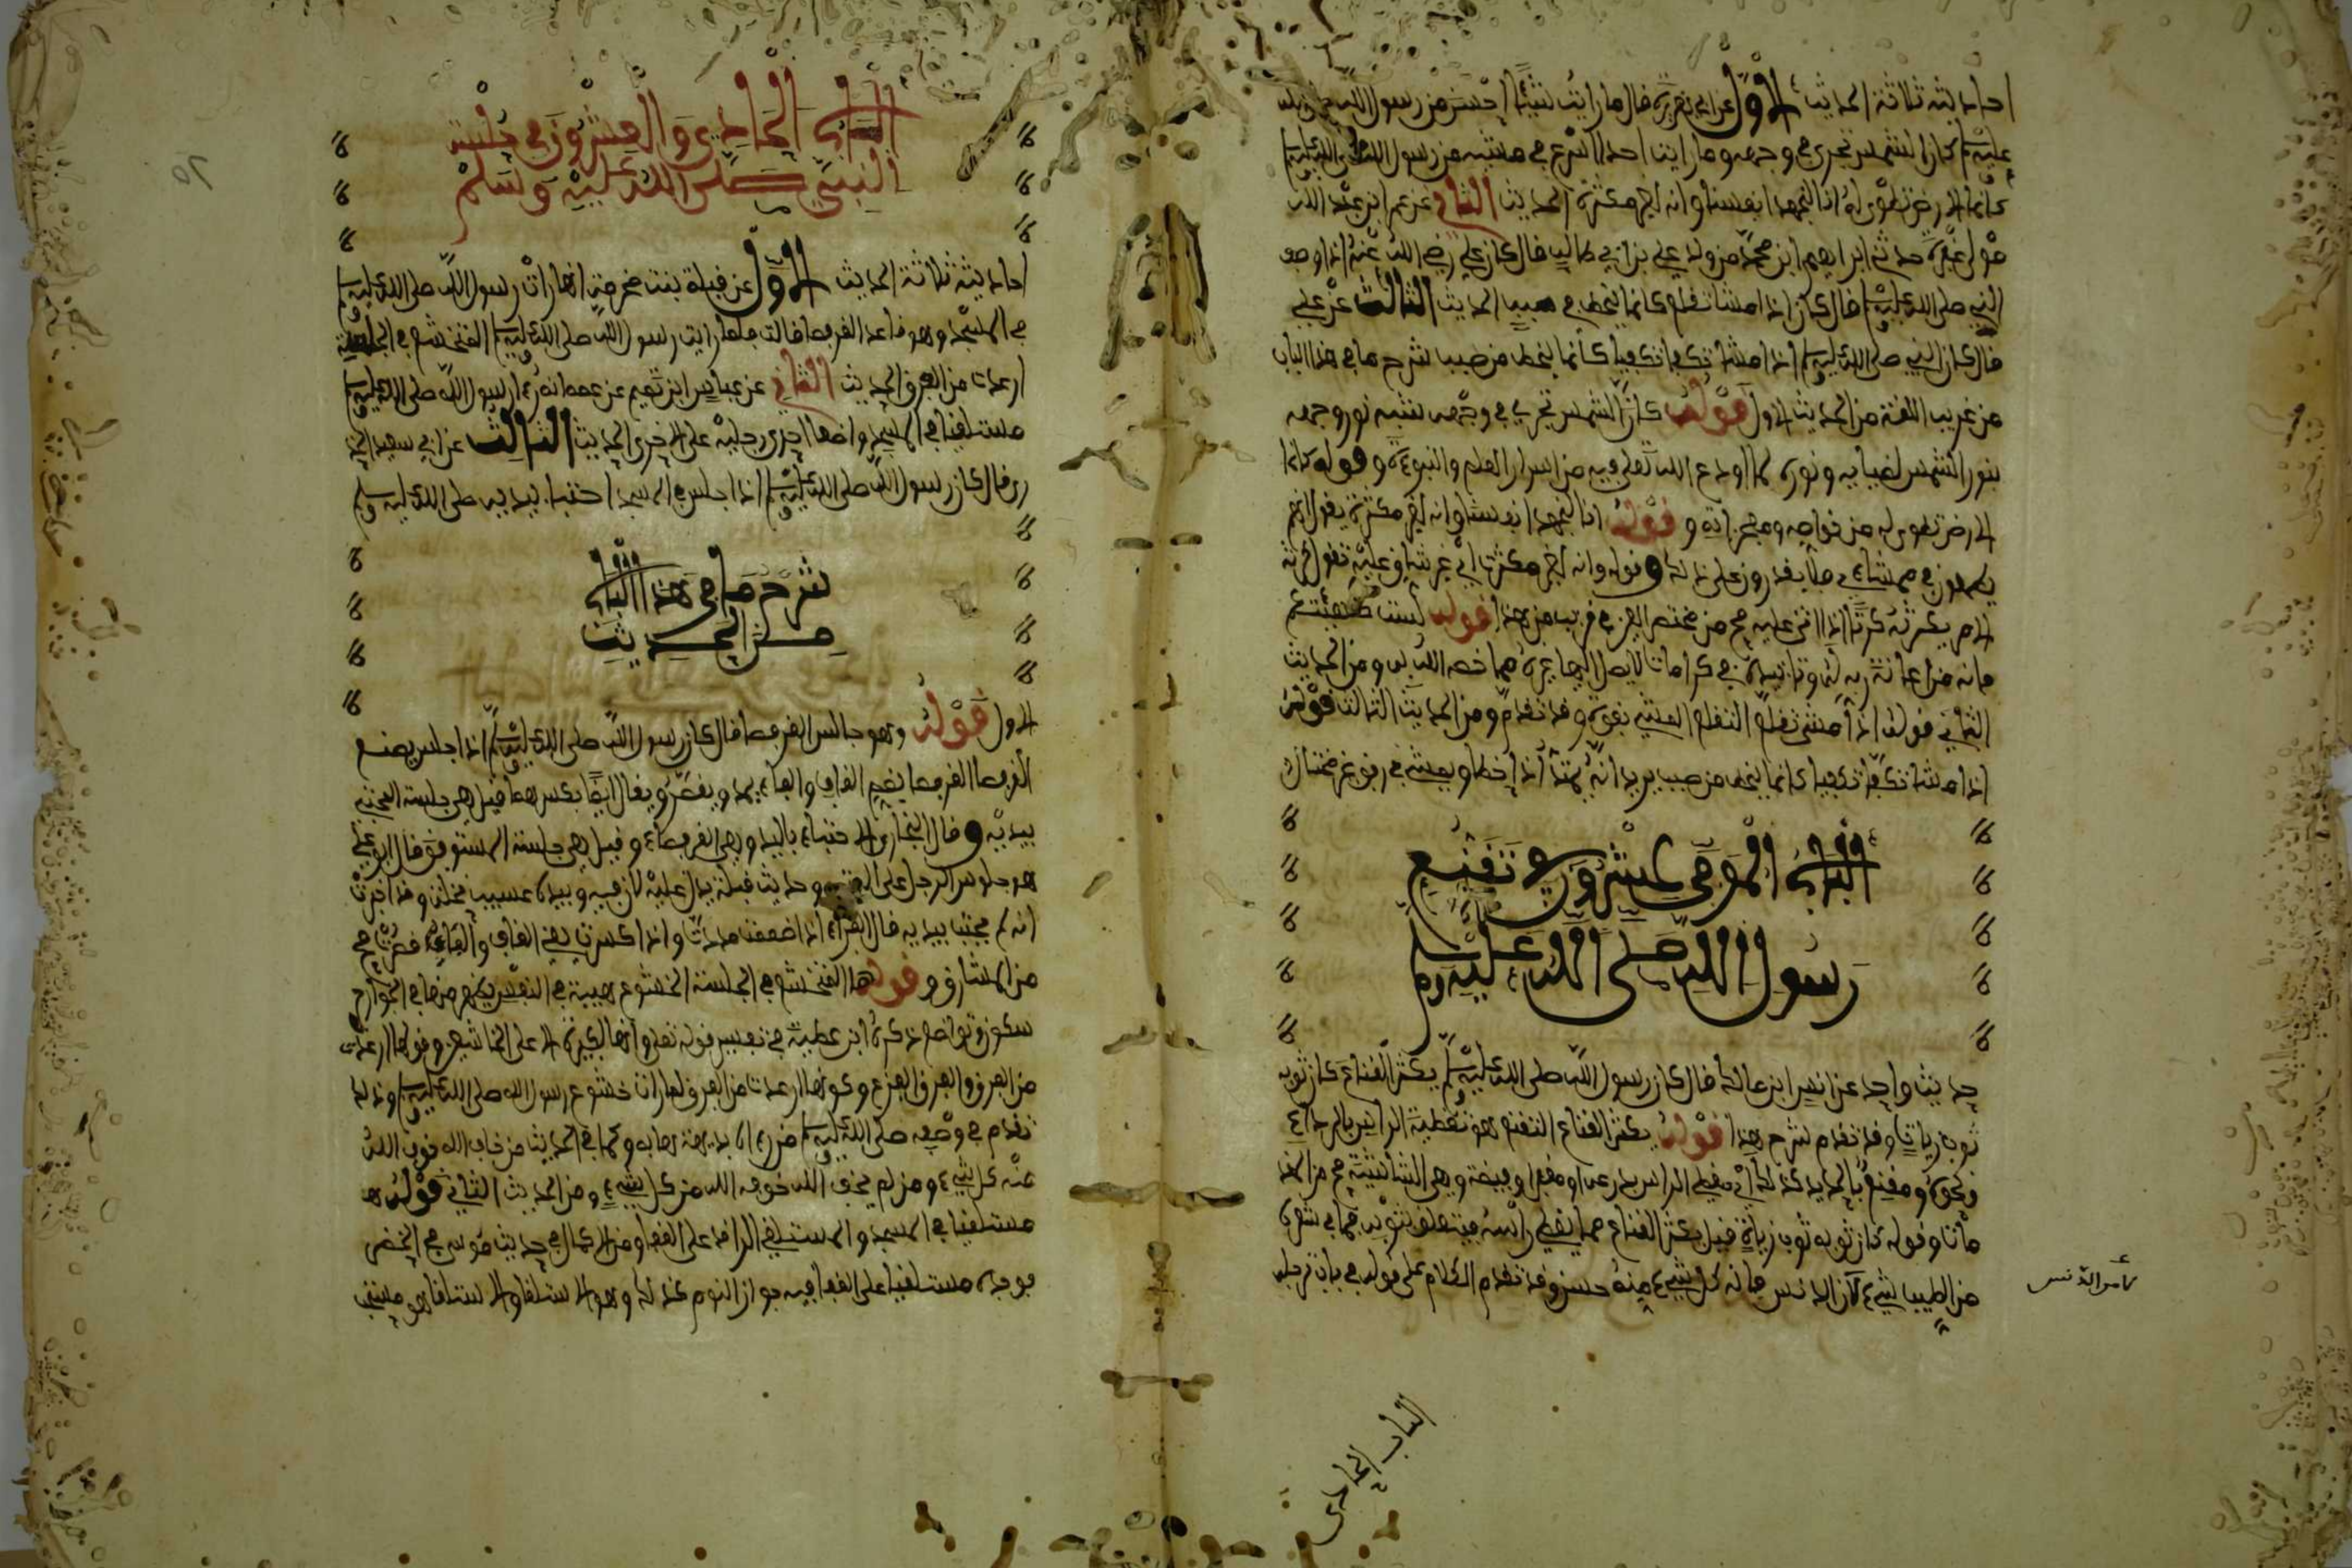 احاديثه ثلاثة الحديث الاول عن ابي هريرة قال ما رايت شيئا احسن من رسول الله صلى الله
عليه وسلم كان الشمس تجري في وجهه وما رايت احدا اسرع في مشيه من رسول الله صلى الله عليه وسلم
كانما الارض تطوى له انا لنجهد انفسنا وانه لغير مكترث الحديث الثاني عن عمر ابن عبد الله
مولى غفرة حدثني ابراهيم ابن محمد من ولد علي بن ابي طالب قال كان علي رضي الله عنه اذا وصف
النبي صلى الله عليه وسلم قال كان اذا مشا تقلع كانما ينحط في صبب الحديث الثالث عن علي
قال كان النبي صلى الله عليه وسلم اذا مشا تكفا تكفيا كأنما ينحط من صبب شرح ما في هذا الباب
من غريب اللغة من الحديث الاول قوله كان الشمس تجري في وجهه شبه نور وجهه
بنور الشمس لضيايه ونوره لما اودع الله تعلى فيه من اسرار العلم والنبوءة وقوله كانما
الارض تطوى له من خواصه ومعجزاته وقوله انا لنجهد انفسنا وانه لغير مكترث يقول انهم
يجهدون في مماشاته فلا يقدرون على ذلك وقوله وانه لغير مكترث اي غير شاق عليه تقول كرثه
الامر يكرثه كرثا اذا اشق عليه صح من مختصر العين قريب من هذا قوله لست كهيئتكم
فانه من اعانة ربه له وتاييده في كرامات لا يصل اليها غيره مما خصه الله به ومن الحديث
الثاني قوله اذا مشى تقلع التقلع المشي بقوة وقد تقدم ومن الحديث الثالث قوله
اذا مشا تكفا تكفيا كانما ينحط من صبب يريد انه يمتد اذا خطا ويمشي في رفق غير مختال
الباب الموفي عشرون في تقنع
رسول الله صلى الله عليه وسلم
حديث واحد عن انس ابن مالك قال كان رسول الله صلى الله عليه وسلم يكثر القناع كان ثوبه
ثوب زيات وقد تقدم شرح هذا قوله يكثر القناع التقنع هو تغطية الراس بالرداء
ونحوه ومقنع بالحديد كذلك اي مغطى الراس
ماتا وقوله كان ثوبه ثوب زيات قيل يكثر القناع مما يغطي راسه
من الطيب شيء لان الدنس فانه كل شيء منه حسن وقد تقدم الكلام على قوله في باب ترجله
تأمل الدنس
الباب الحادي
الباب الحادي والعشرون في جلسة
النبي صلى الله عليه وسلم
احاديثه ثلاثة الحديث الاول عن قيلة بنت مخرمة انها رات رسول الله صلى الله عليه وسلم
في المسجد وهو قاعد القرفصا قالت فلما رايت رسول الله صلى الله عليه وسلم المتخشع في الجلسة
ارعدت من الفرق الحديث الثاني عن عباد ابن تميم عن عمه انه رءا رسول الله صلى الله عليه وسلم
مستلقيا في المسجد واضعا احدى رجليه على الاخرى الحديث الثالث عن ابي سعيد الخد
ري قال كان رسول الله صلى الله عليه وسلم اذا جلس في المسجد احتبا بيديه صلى الله عليه وسلم
شرح ما في هذا الباب
من الحديث
الاول قوله وهو جالس القرفصا قال كان رسول الله صلى الله عليه وسلم اذا جلس يضع
القرفصا القرفصا بضم القاف والفاء يمد ويقصر ويقال ايضا بكسرهما قيل هي جلسة المحتبي
بيديه وقال البخاري الاحتباء باليد وهي القرفصاء وقيل هي جلسة المستوفز قال ابو علي
هو جلوس الرجل على وحديث قيلة يدل عليه لان فيه وبيده عسيب نخلة وقد اخبرت
انه لم يحتب بيديه قال الفراء اذا ضممت مددت واذا كسرت يعني القاف والفاء قصرت صح
من المشارق وقولها المتخشع في الجلسة الخشوع هيبة في النفس يظهر منها في الجوارح
سكون وتواضع ذكره ابن عطية في تفسير قوله تعلى وانها لكبيرة الا على الخاشعين وقولها ارعدت
من الفرق والفرق الفزع وكونها ارعدت من الفرق لما رات خشوع رسول الله صلى الله عليه وسلم وذلك
تقدم في وصفه صلى الله عليه وسلم من رءاه بديهة هابه وكما في الحديث من خاف الله خوف الله
منه كل شيء ومن لم يخف الله خوفه الله من كل شيء ومن الحديث الثاني قوله
مستلقيا في المسجد والمستلقي الراقد على القفا ومن الاكمال في حديث موسى مع الخضر
فوجده مستلقيا على القفا فيه جواز النوم كذلك وهو الاستلقا والاستلقا هو